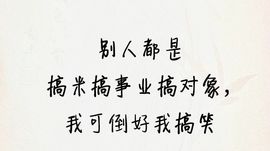 别人都是
搞米搞事业搞对象，
我可倒好我搞笑